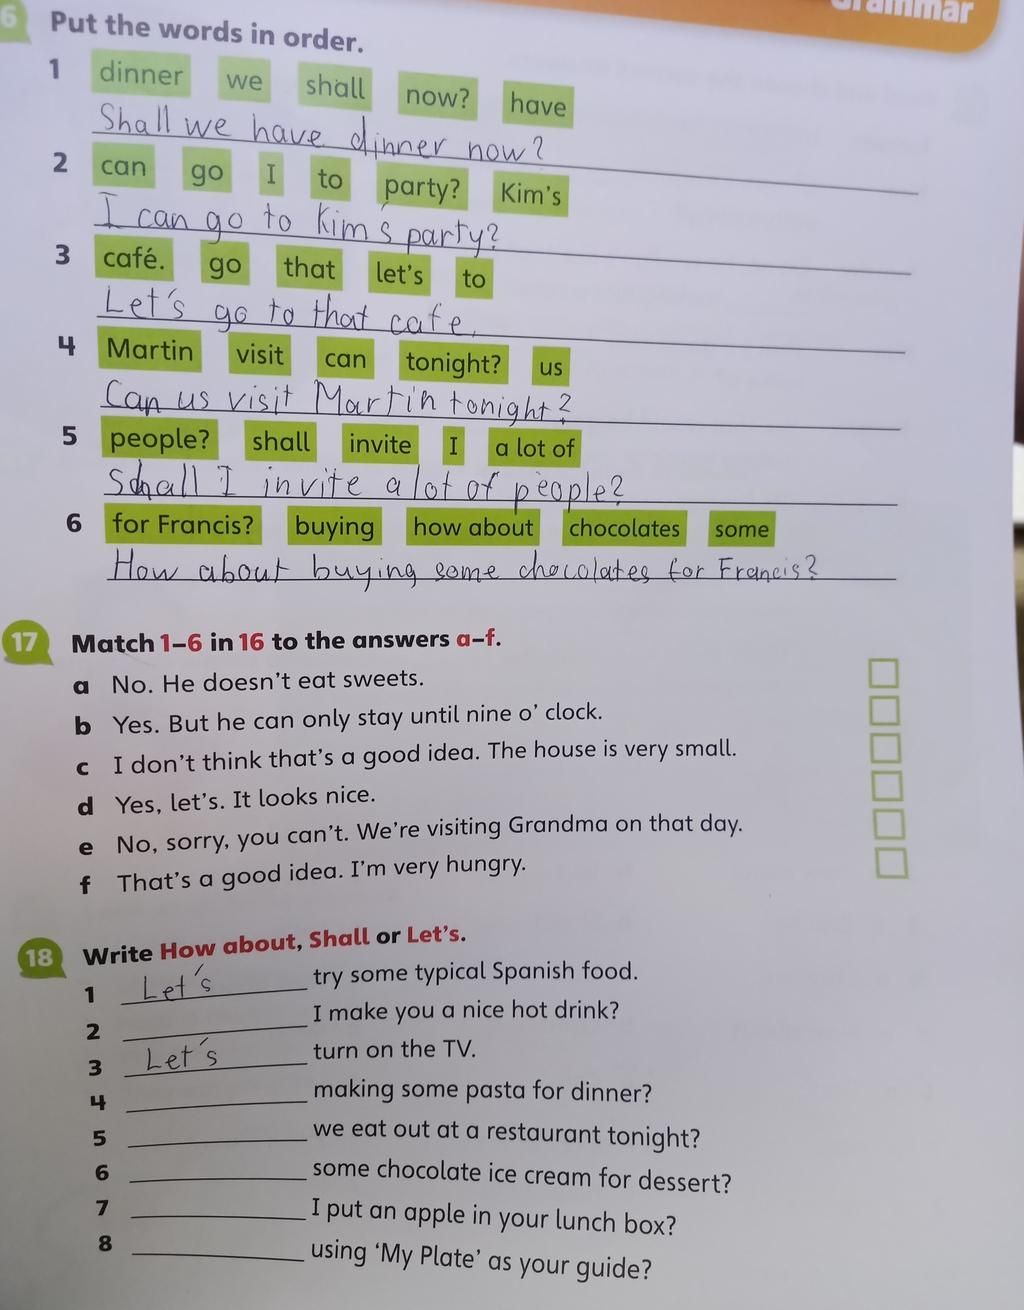 Grammar
6 Put the words in order.
1 dinner we shall now? have
Shall we have dinner now?
2 can go I to party? Kim's
I can go to Kim's party?
3 café. go that let's to
Let's go to that cafe.
4 Martin visit can tonight? us
Can us visit Martin tonight?
5 people? shall invite I a lot of
Shall I invite a lot of people?
6 for Francis? buying how about chocolates some
How about buying some chocolates for Francis?
17 Match 1–6 in 16 to the answers a–f.
a No. He doesn't eat sweets.
b Yes. But he can only stay until nine o' clock.
c I don't think that's a good idea. The house is very small.
d Yes, let's. It looks nice.
e No, sorry, you can't. We're visiting Grandma on that day.
f That's a good idea. I'm very hungry.
18 Write How about, Shall or Let's.
1 Let's try some typical Spanish food.
2 I make you a nice hot drink?
3 Let's turn on the TV.
4 making some pasta for dinner?
5 we eat out at a restaurant tonight?
6 some chocolate ice cream for dessert?
7 I put an apple in your lunch box?
8 using 'My Plate' as your guide?